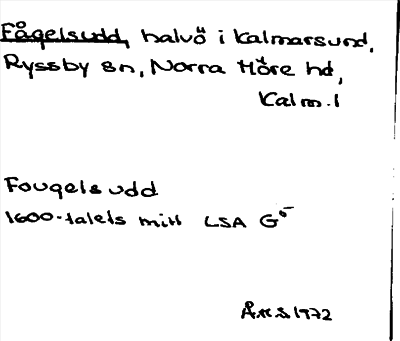 Fågelsudd, halvö i Kalmarsund,
Ryssby sn, Norra Möre hd,
Kalm. l
Fougelsudd
1600-talets mitt LSA G
1972